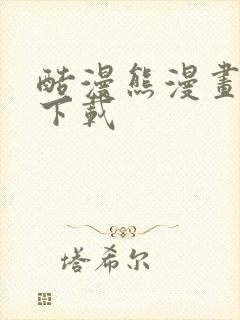 酷漫熊漫畫
下載
塔希尔